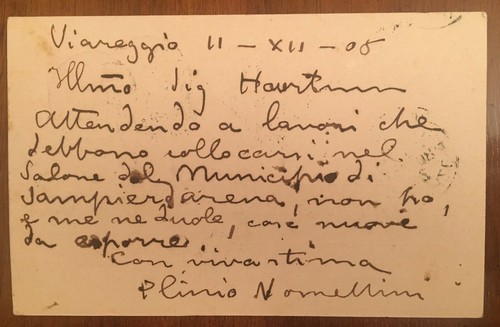 Viareggio 11 - XII - 08
Illmo Sig Hartmm
Attendendo a lavori che
debbono collocarsi nel
Salone del Municipio di
Sampierdarena, non ho,
e me ne duole, cose nuove
da esporre
Con viva stima
Plinio Nomellini